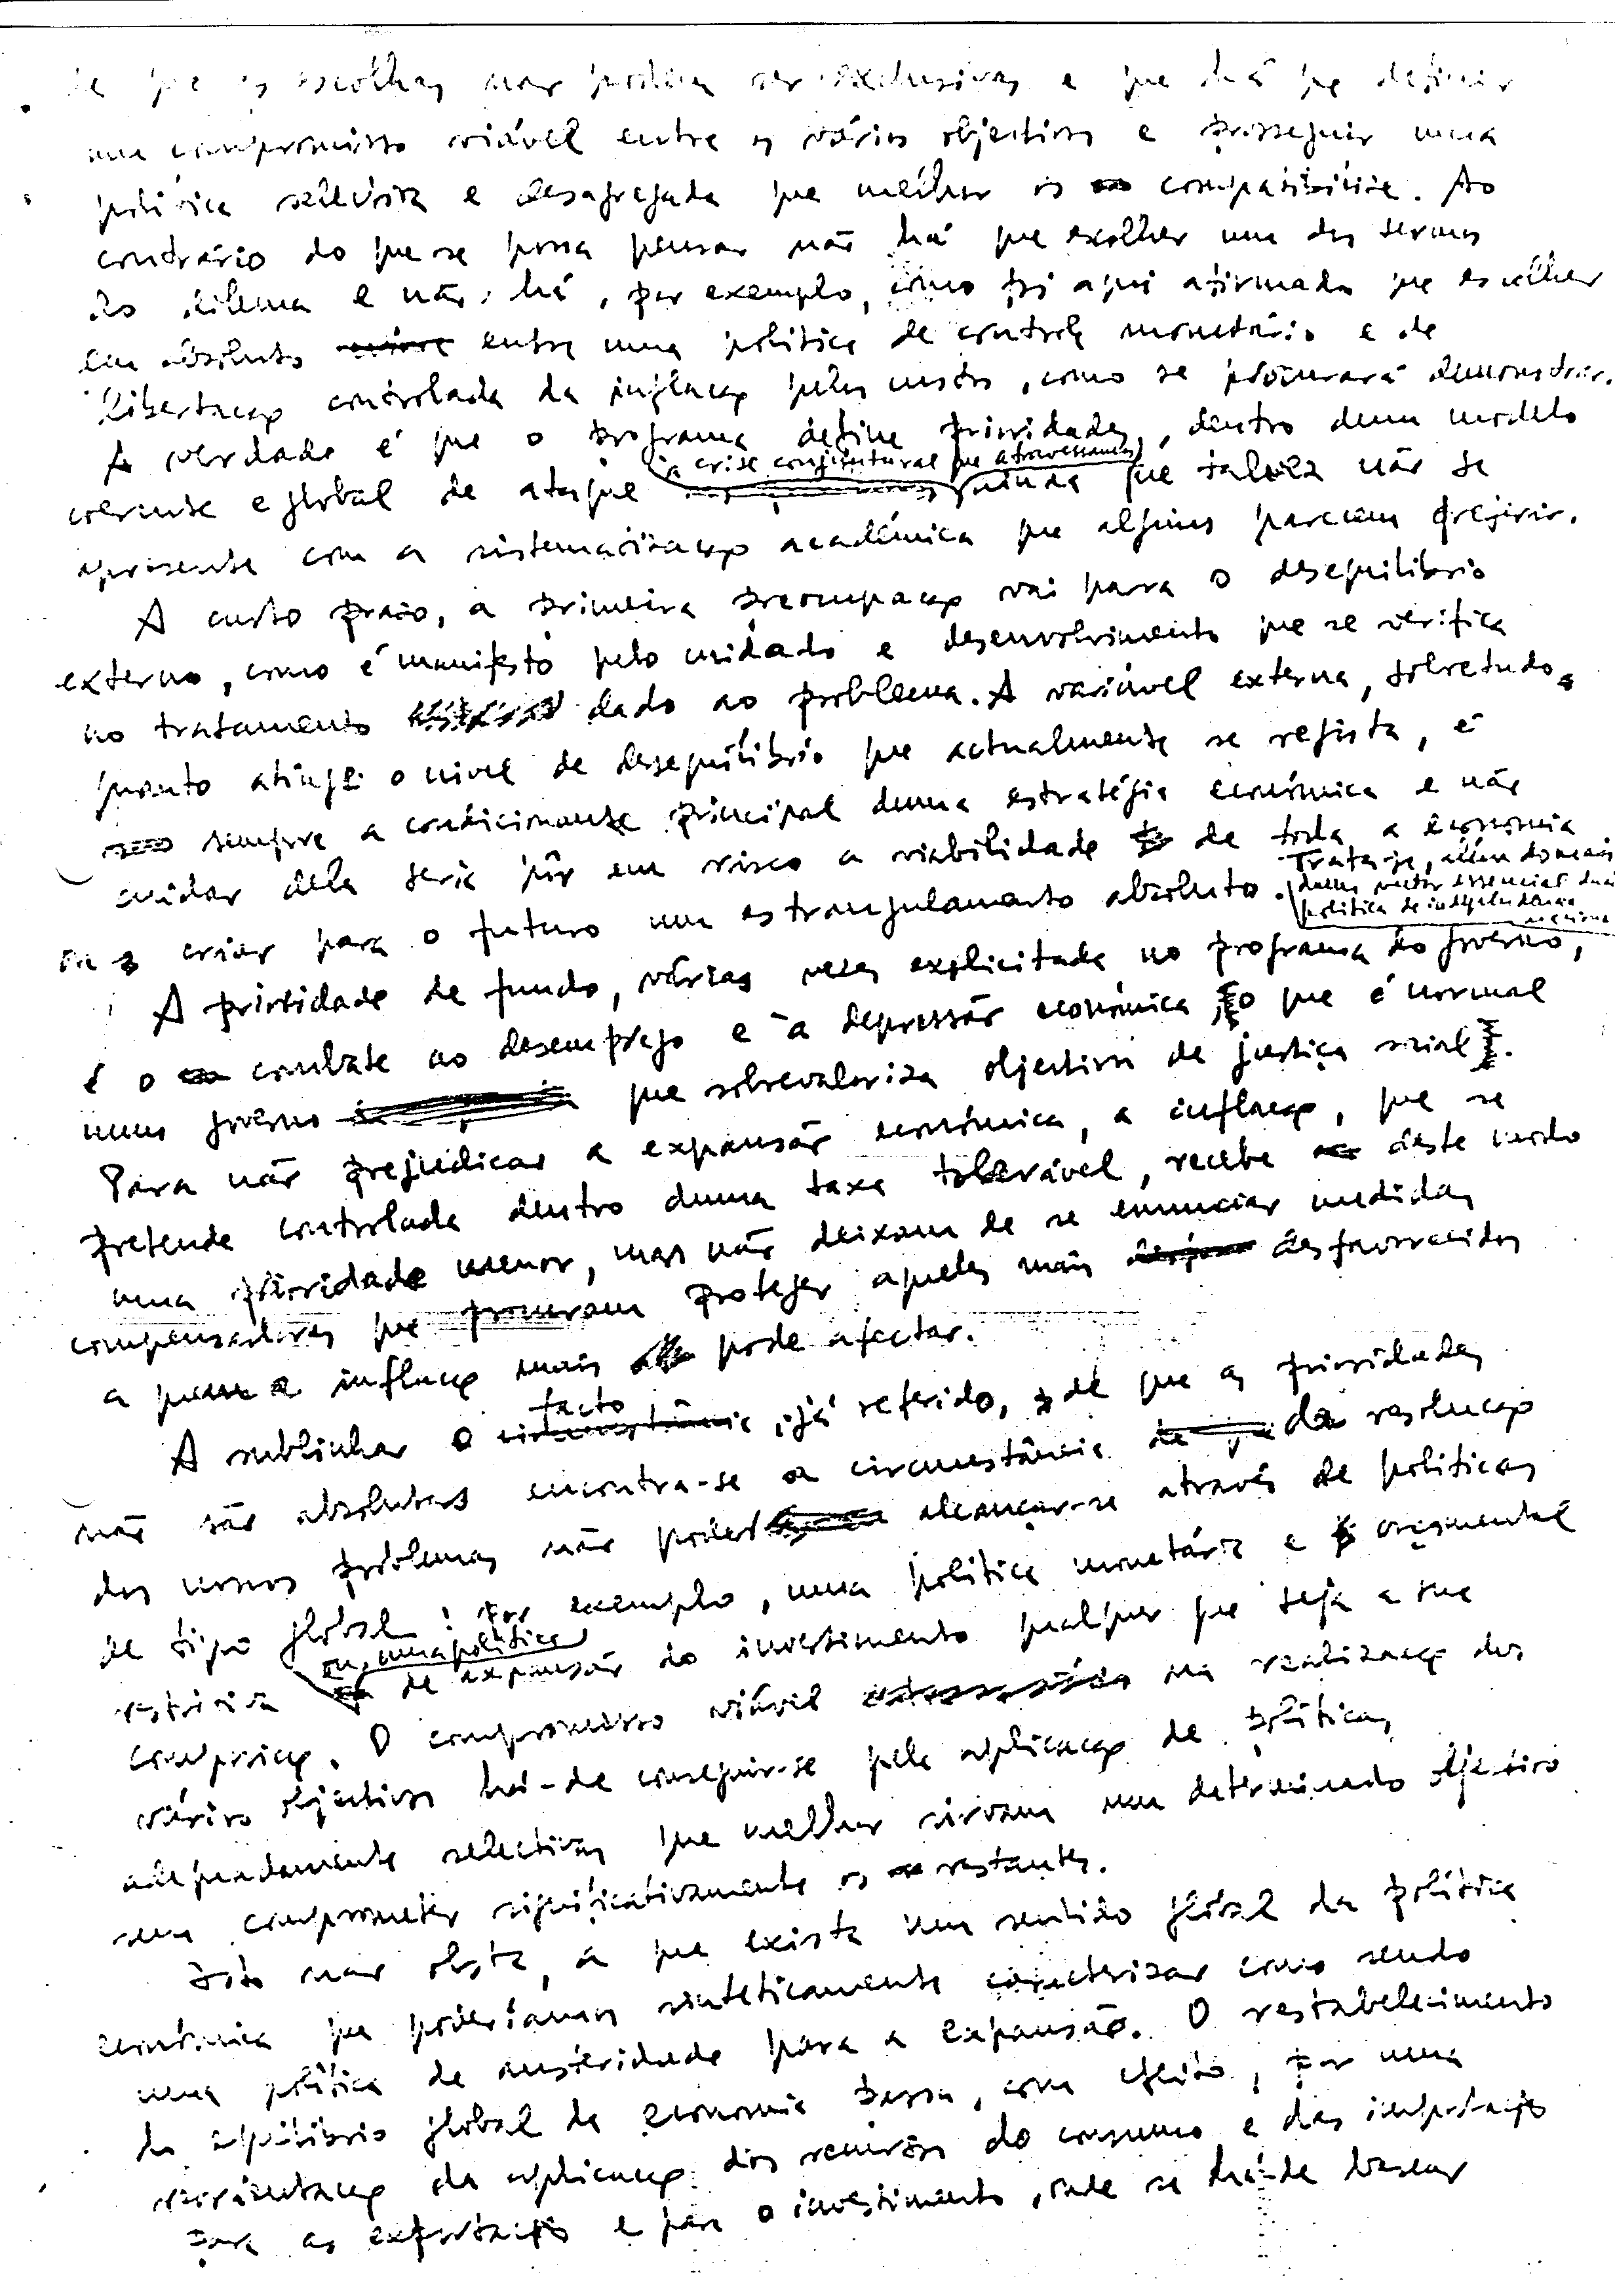 de que as escolhas não podem ser exclusivas e que há que definir
um compromisso viável entre os vários objectivos e prosseguir uma
política selectiva e desagregada que melhor os compatibilize. Ao
contrário do que se possa pensar não há que escolher um dos termos
do dilema e não há, por exemplo, como foi aqui afirmado que escolher
em absoluto entre uma política de controle monetário e de
libertação controlada da inflação pelos custos, como se procurará demonstrar.
A verdade é que o programa define prioridades, dentro dum modelo
coerente e global de ataque à crise conjuntural que atravessamos, ainda que talvez não se
apresente com a sistematização académica que alguns parecem preferir.
A curto prazo, a primeira preocupação vai para o desequilíbrio
externo, como é manifesto pelo cuidado e desenvolvimento que se verifica
no tratamento dado ao problema. A variável externa, sobretudo
quanto atinge o nível de desequilíbrio que actualmente se regista, é
sempre a condicionante principal duma estratégia económica e não
cuidar dela seria pôr em risco a viabilidade de toda a economia
ou criar para o futuro um estrangulamento absoluto. Trata-se, além do mais
dum vector essencial duma
política de independência
nacional
A prioridade de fundo, várias vezes explicitada no programa do governo,
é o combate ao desemprego e à depressão económica, o que é normal
num governo que sobrevaloriza objectivos de justiça social.
Para não prejudicar a expansão económica, a inflação, que se
pretende controlada dentro duma taxa tolerável, recebe deste modo
uma prioridade menor, mas não deixam de se enunciar medidas
compensadoras que procuram proteger aqueles mais desfavorecidos
a quem a inflação mais pode afectar.
A sublinhar o facto, já referido, de que as prioridades
não são absolutas encontra-se a circunstância da resolução
dos nossos problemas não poder alcançar-se através de políticas
de tipo global: por exemplo, uma política monetária e orçamental
restritiva ou uma política de expansão do investimento qualquer que seja a sua
composição. O compromisso viável na realização dos
vários objectivos há-de conseguir-se pela aplicação de políticas
adequadamente selectivas que melhor sirvam um determinado objectivo
sem comprometer significativamente os restantes.
Isto não obsta, a que exista um sentido global da política
económica que poderíamos sinteticamente caracterizar como sendo
uma política de austeridade para a expansão. O restabelecimento
do equilíbrio global da economia passa, com efeito, por uma
reorientação da aplicação dos recursos do consumo e das importações
para as exportações e para o investimento, onde se há-de basear